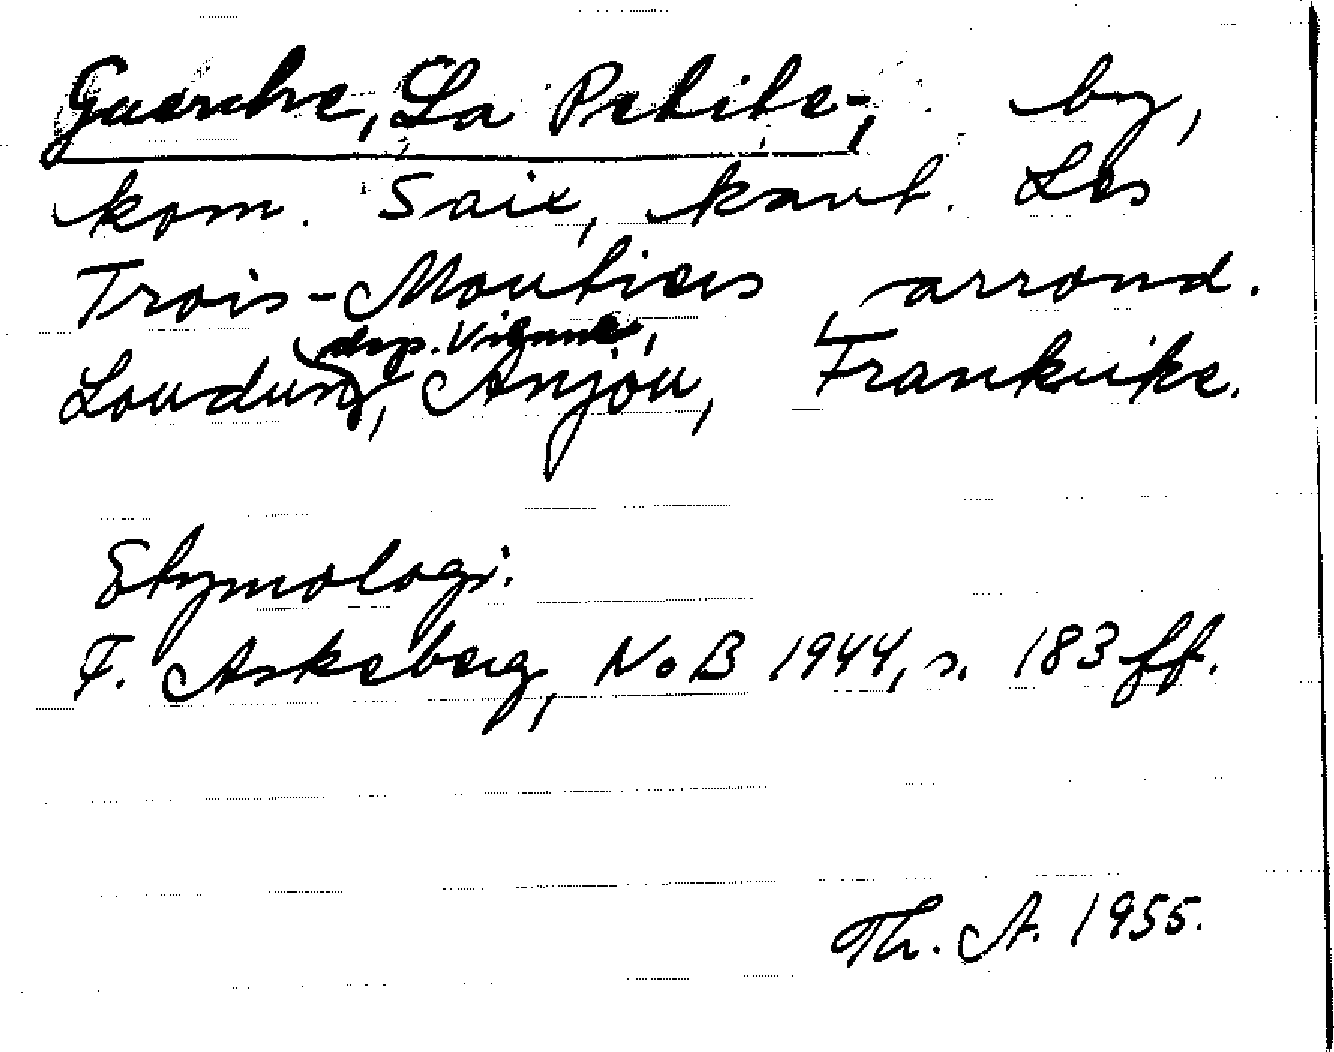 Guerche, La Petite-, by,
kom. Saix, kant. Les
Trois-Moutiers, arrond.
dep. Vienne,
Loudun, Anjou, Frankrike.
Etymologi.
F. Askeberg, NoB 1944, s. 183 ff.
Th. A. 1955.